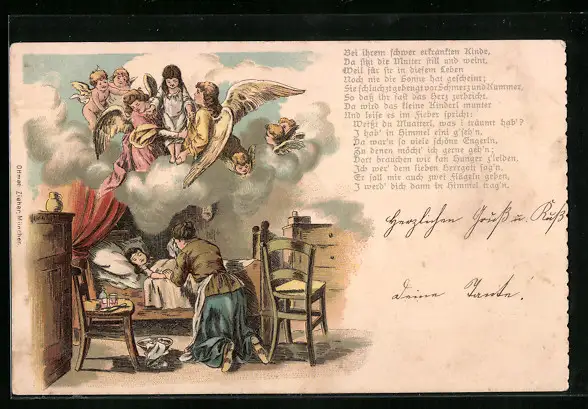 Bei ihrem schwer erkrankten Kinde,
Da sitzt die Mutter still und weint,
Weil für sie in diesem Leben
Noch nie die Sonne hat gescheint;
Sie schluchzt gebeugt vor Schmerz und Kummer,
So daß ihr fast das Herz zerbricht.
Da wird das kleine Kinderl munter
Und leise es im Fieber spricht:
Weißt Du Muatterl, was i träumt hab'?
I hab' in Himmel eini g'seh'n,
Da war'n so viele schöne Engerln,
Zu denen möcht' ich gerne geh'n;
Dort brauchen wir kan Hunger z'leiden,
Ich wer' dem lieben Herrgott sag'n,
Er soll mir auch zwei Flügeln geben,
I werd' dich dann in Himmel trag'n.
Herzlichen Gruß u. Kuß
Deine Tante!
Ottmar Zieher, München.